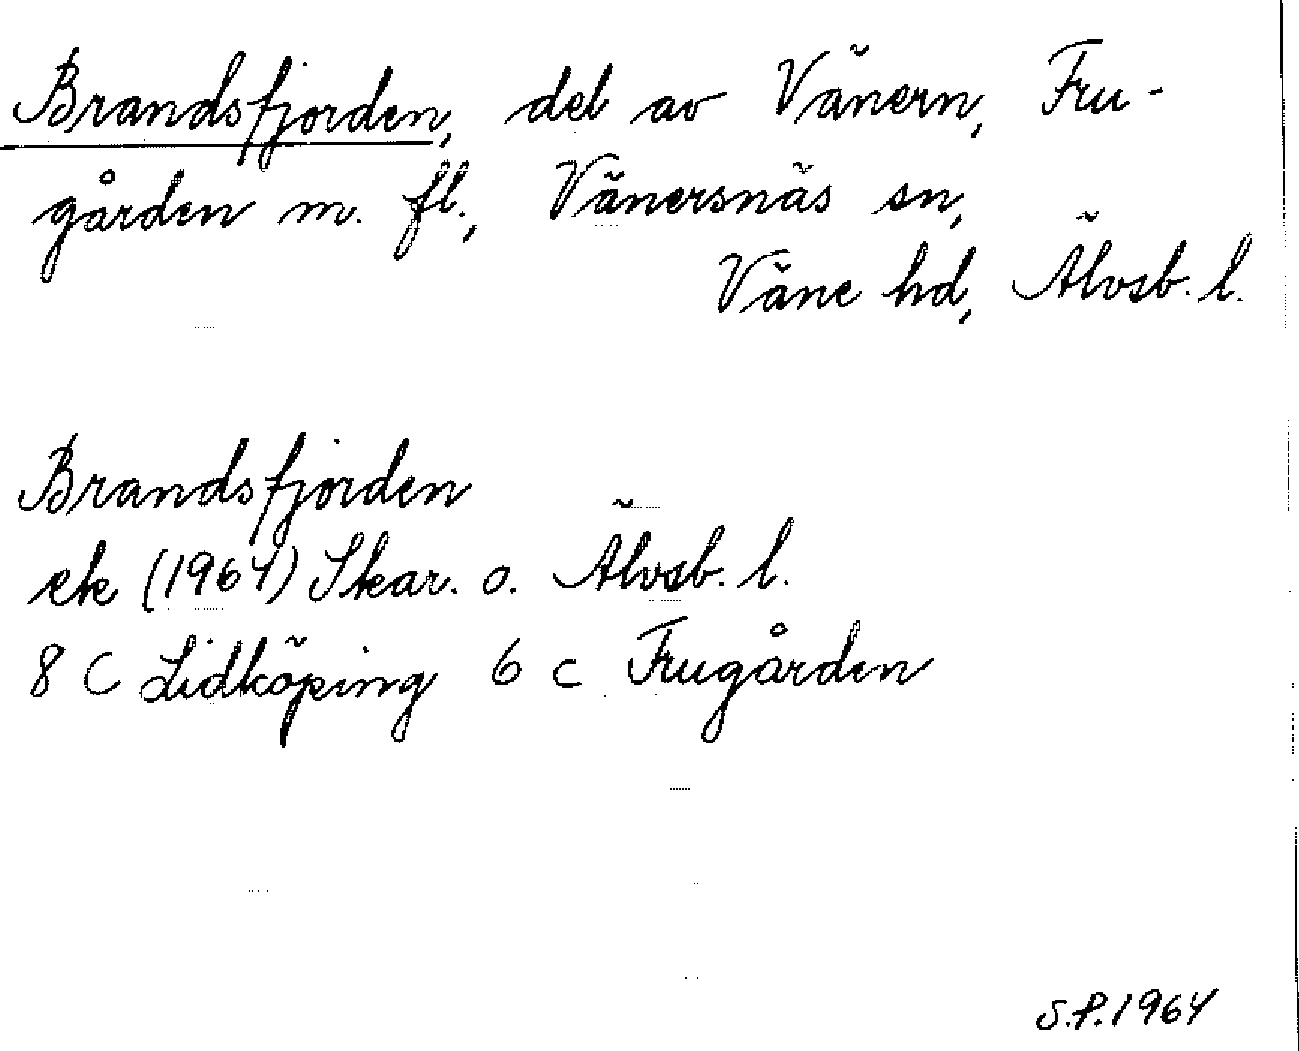 Brandsfjorden, del av Vänern, Fru-
gården m. fl., Vänersnäs sn,
Väne hd, Älvsb. l.
Brandsfjorden
ek (1964) Skar. o. Älvsb. l.
8 C Lidköping 6 c Frugården
S.P. 1964